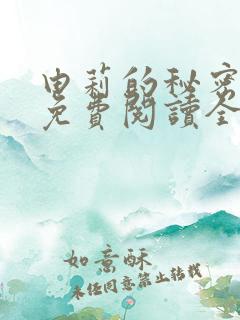 申莉的秘密
免費閱讀全
如意酥
未经同意禁止转载